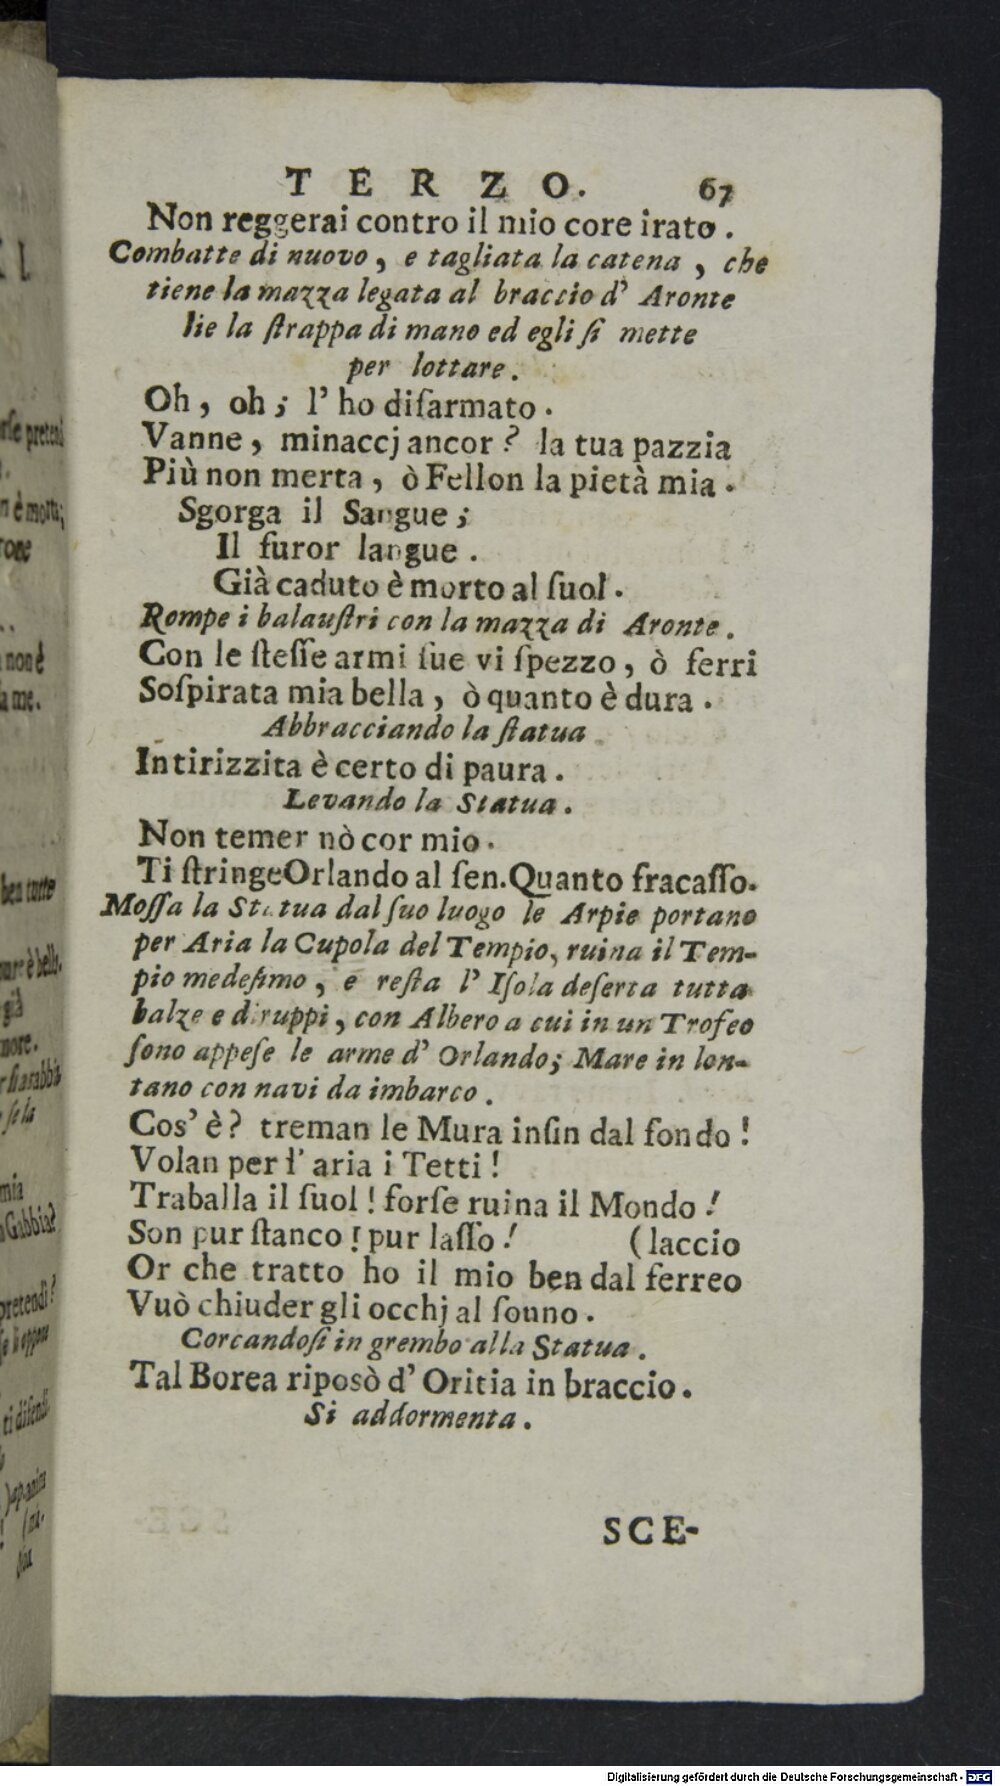 TERZO. 67
Non reggerai contro il mio core irato.
Combatte di nuovo, e tagliata la catena, che
tiene la mazza legata al braccio d' Aronte
lie la ſtrappa di mano ed egli ſi mette
per lottare.
Oh, oh; l' ho diſarmato.
Vanne, minaccj ancor? la tua pazzia
Più non merta, ò Fellon la pietà mia.
Sgorga il Sangue;
Il furor langue.
Già caduto è morto al ſuol.
Rompe i balauſtri con la mazza di Aronte.
Con le ſteſſe armi ſue vi ſpezzo, ò ferri
Soſpirata mia bella, ò quanto è dura.
Abbracciando la ſtatua
Intirizzita è certo di paura.
Levando la Statua.
Non temer nò cor mio.
Ti ſtringe Orlando al ſen. Quanto fracaſſo.
Moſſa la Statua dal ſuo luogo le Arpie portano
per Aria la Cupola del Tempio, ruina il Tem-
pio medeſimo, e reſta l' Iſola deſerta tutta
balze e diruppi, con Albero a cui in un Trofeo
ſono appeſe le arme d' Orlando; Mare in lon-
tano con navi da imbarco.
Cos' è? treman le Mura inſin dal fondo!
Volan per l' aria i Tetti!
Traballa il ſuol! forſe ruina il Mondo!
Son pur ſtanco! pur laſſo! (laccio
Or che tratto ho il mio ben dal ferreo
Vuò chiuder gli occhj al ſonno.
Corcandoſi in grembo alla Statua.
Tal Borea riposò d' Oritia in braccio.
Si addormenta.
SCE-
Digitalisierung gefördert durch die Deutsche Forschungsgemeinschaft - DFG